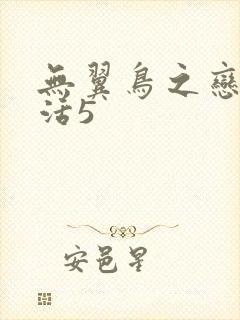 無翼鳥之戀
活5
安邑星